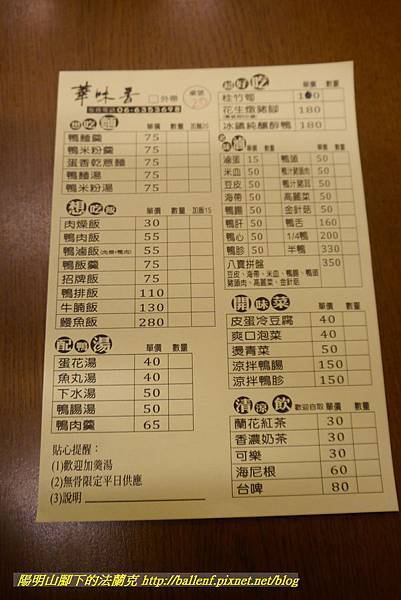 華味香
□外帶
桌號
25
服務電話06-6353698
想吃麵 單價 數量 加麵20
鴨麵羹 75
鴨米粉羹 75
蛋香乾意麵 75
鴨麵湯 75
鴨米粉湯 75
想吃飯 單價 數量 加飯15
肉燥飯 30
鴨肉飯 55
鴨滷飯(肉燥+鴨肉) 55
鴨飯羹 75
招牌飯 75
鴨排飯 110
牛腩飯 130
鰻魚飯 280
配鴨湯 單價 數量
蛋花湯 40
魚丸湯 40
下水湯 50
鴨腸湯 50
鴨肉羹 65
貼心提醒：
(1)歡迎加羹湯
(2)無骨限定平日供應
(3)說明
超好吃 單價 數量
桂竹筍 100
花生燉豬腳 180
冰鎮純釀醉鴨 180
單價 數量 單價 數量
滷蛋 15 鴨頭 50
米血 50 鴨汁豬頭肉 50
豆皮 50 鴨汁豬耳 50
海帶 50 高麗菜 50
鴨腸 50 金針菇 50
鴨肝 50 鴨舌 160
鴨心 50 1/4鴨 200
鴨胗 50 半鴨 330
八寶拼盤 350
豆皮、海帶、米血、鴨腸、鴨頭
豬頭肉、高麗菜、金針菇
開味菜 單價 數量
皮蛋冷豆腐 40
爽口泡菜 40
燙青菜 50
涼拌鴨腸 150
涼拌鴨胗 150
清涼飲 歡迎自取 單價 數量
蘭花紅茶 30
香濃奶茶 30
可樂 30
海尼根 60
台啤 80
陽明山腳下的法蘭克 http://ballenf.pixnet.net/blog